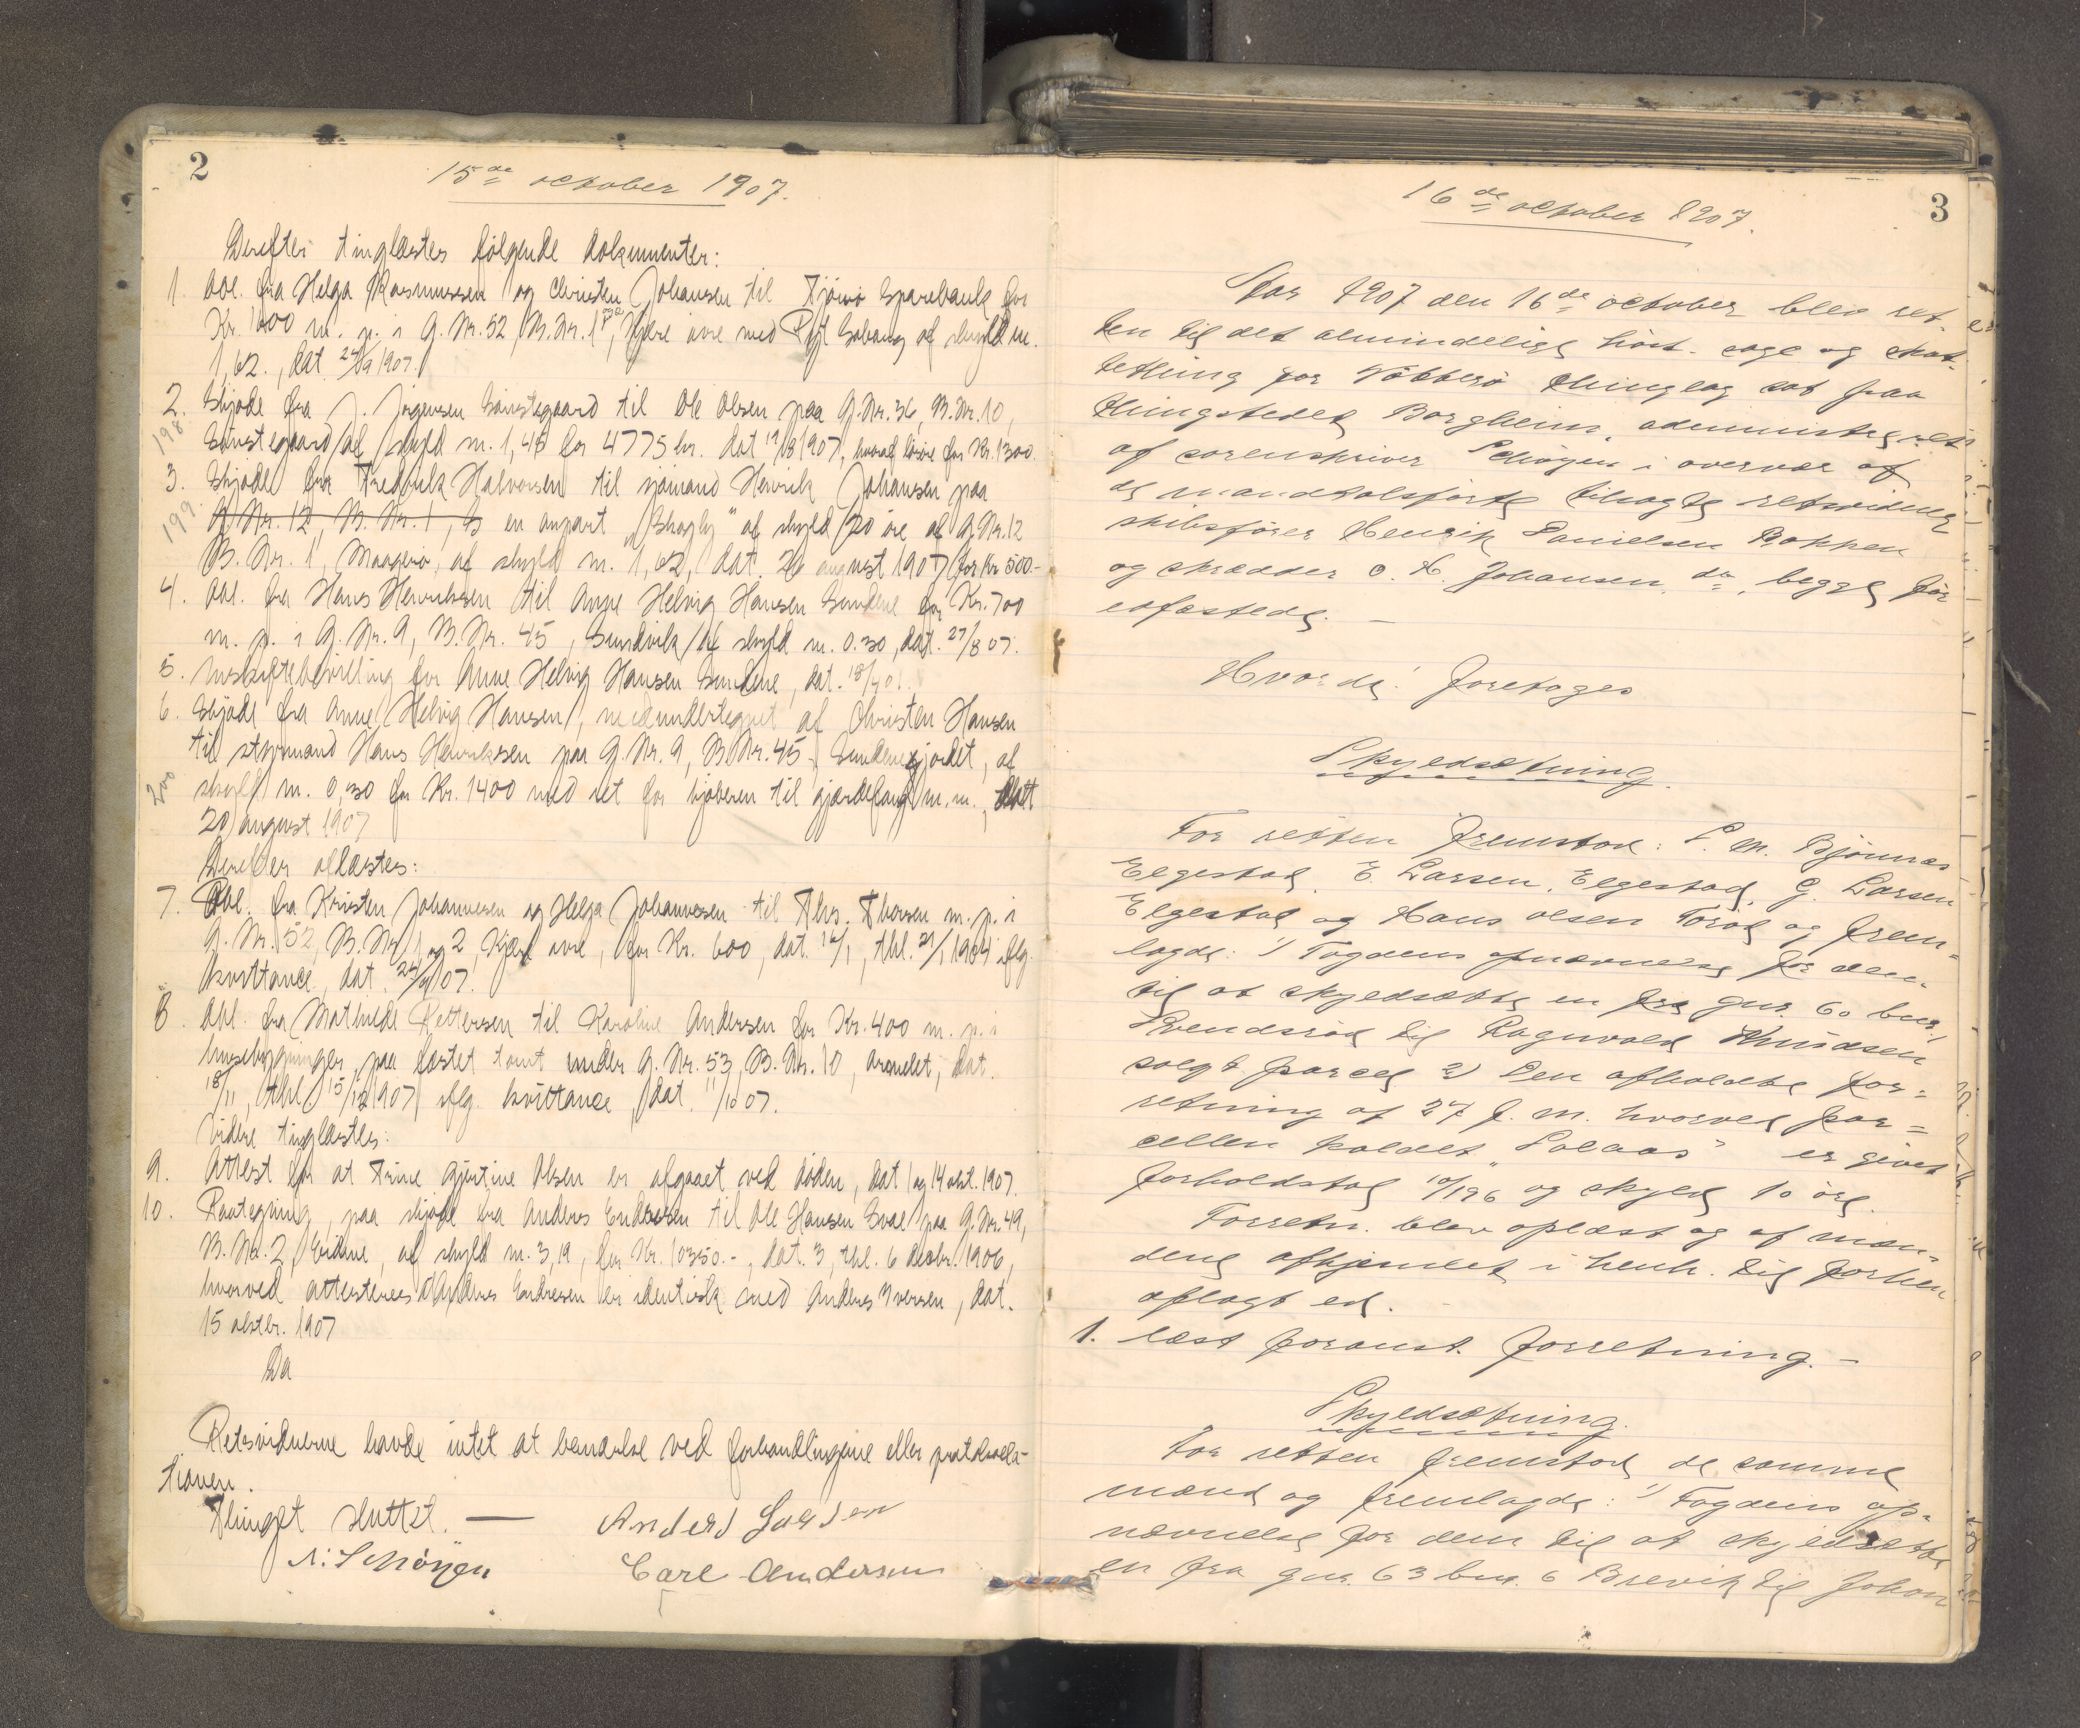 2
15de october 1907.
Derefter tinglæstes følgende dokumenter:
1. Obl. fra Helga Rasmussen og Christen Johansen til Tjömö Sparebank for
Kr. 1000 m. p. i G. Nr. 52, B. Nr. 1 og 2, Kjære övre med af skyld m.
1,62., dat. 24/9 1907.
2. Skjöde fra J. Jörgensen til Ole Olsen paa G. Nr. 36, B. Nr. 10,
198
af skyld m. 1,48 for 4775 kr. dat 19/8 1907, hvoraf lösöre for Kr. 1300.
3. Skjöde fra Fredrik Halvorsen til sjömand Henrik Johansen paa
199.
G. Nr. 12, B. Nr. 1, en anpart „Skogly" af skyld 20 öre af G. Nr. 12
B. Nr. 1, Maagerö, af skyld m. 1,62, dat. 26 august 1907 for Kr 500.-
4. Obl. fra Hans Henriksen til Anne Helvig Hansen Sundene for Kr. 700
m. p. i G. Nr. 9, B. Nr. 45, Sundvik af skyld m. 0.30, dat. 27/8 07.
5. Uskiftebevilling for Anne Helvig Hansen Sundene, dat. 18/ 01.
6. Skjöde fra Anne Helvig Hansen, medundertegnet af Christen Hansen
til styrmand Hans Henriksen paa G. Nr. 9, B. Nr. 45, Sundenegjordet, af
200
skyld m. 0,30 for Kr. 1400 med ret for kjöberen til gjærdefang m. m., datt
20 august 1907
Derefter aflæstes:
7. Obl. fra Kristen Johannesen og Helga Johannesen til Ths. Thorsen m. p. i
G. Nr. 52, B. Nr. 1 og 2, Kjære övre, for Kr. 600, dat. 16/1, thl. 21/1 1904 iflg.
kvittance, dat. 24/9 07.
8. Obl. fra Mathilde Pettersen til Karoline Andersen for Kr. 400 m. p. i
husebygninger paa fæstet tomt under G. Nr. 53, B. Nr. 10, Aröndet, dat.
18/11, thl. 15/12 1907 iflg. kvittance, dat. 11/10 07.
Videre tinglæstes:
9. Attest for at Trine Gjurine Olsen er afgaaet ved döden, dat 1 og 14 okt. 1907.
10. Paategning, paa skjöde fra Anders Endresen til Ole Hansen paa G. Nr. 49,
B. Nr. 2, Eidene, af skyld m. 3,19, for Kr. 10350.-, dat. 3, thl. 6 decbr. 1906,
hvorved attesteres at Anders Endresen er identisk med Anders Iversen, dat.
15 oktbr. 1907
Da
Retsvidnerne havde intet at bemærke ved forhandlingerne eller protokolla-
tionen.
Thinget sluttet. — Anders Larsen
N. Schöyen Carl Andersen
3
16de october 1907.
Aar 1907 den 16de october blev ret-
ten til det almindelige höst- sage og skat-
tething for Nötterö thinglag sat paa
thingstedet Borgheim, administreret
af sorenskriver Schöyen i overvær af
de mandtalsförte tilsagte retsvidner
skibsförer Henrik Danielsen Bakken
og skrædder O. H. Johansen, do., begge för
edfæstede. —
Hvorda: foretoges
Skyldsætning.
For retten fremstod: L. M. Björnæs
Elgestad, E. Larsen, Elgestad, G. Larsen
Elgestad og Hans Olsen Toröd og frem-
lagde: 1) Fogdens opnævnelse for dem
til at skyldsætte en fra gnr. 60 bnr. 1,
Svendsröd til Ragnvald Knudsen
solgt parcel 2) Den afholdte for-
retning af 27 f. m. hvorved par-
cellen kaldet „Solaas" er givet
forholdstal 10/196 og skyld 10 öre.
Forretn. blev oplæst og af mæn-
dene afhjemlet i henh. til forhen
aflagt ed.
1. læst foranst. forretning. —
Skyldsætning.
For retten fremstod de samme
mænd og fremlagde: 1) Fogdens op-
nævnelse for dem til at skyldsætte
en fra gnr. 63 bnr. 6 Brevik til Johan